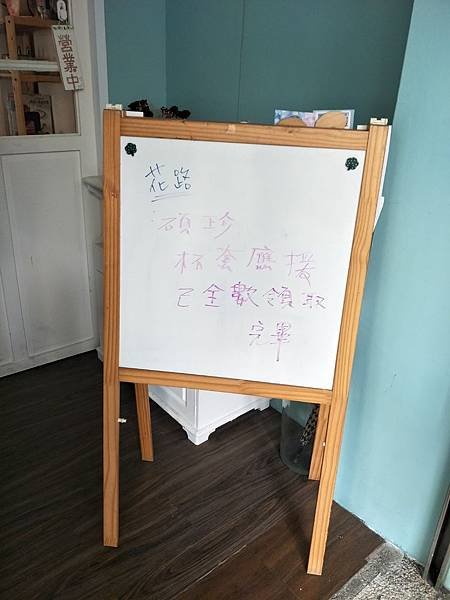 營業中
花路
碩珍
杯套應援
已全數領取
完畢